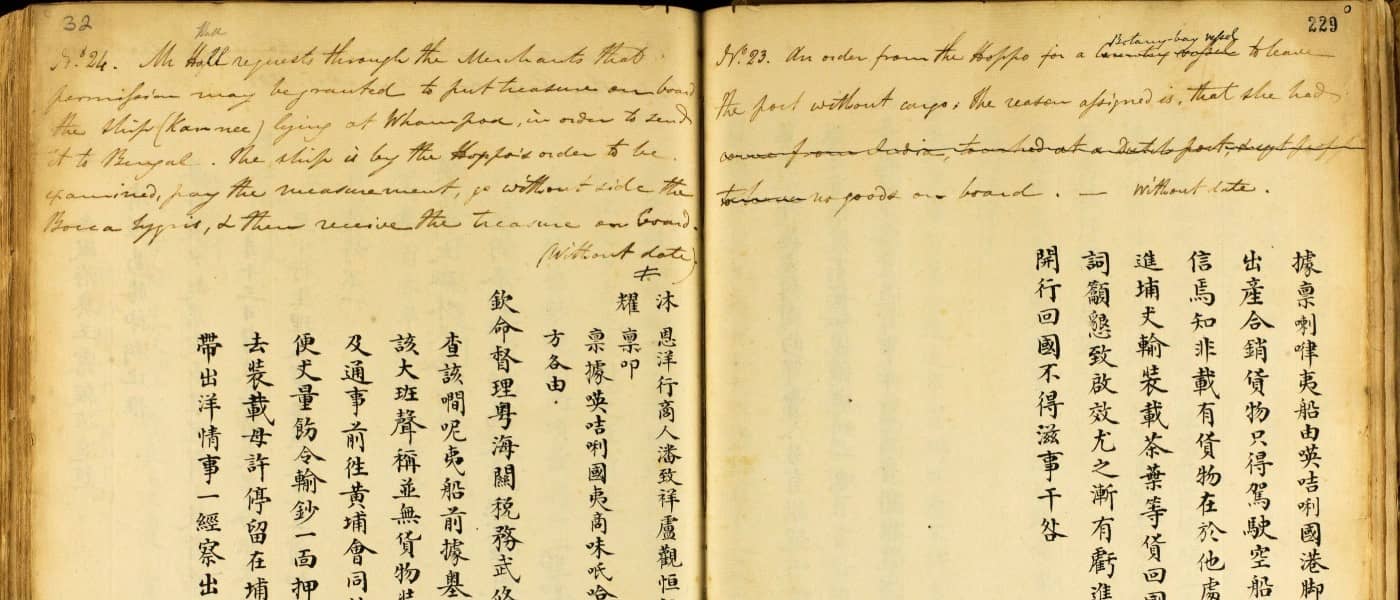 32
Hall
No. 24. Mr Hall requests through the Merchants that
permission may be granted to put treasure on board
the ship (Kannee) lying at Whampoa, in order to send
it to Bengal. The ship is by the Hoppo's order to be
examined, pay the measurement, go without side the
Bocca Tygris, & then receive the treasure on board.
(Without date)
沐恩洋行商人潘致祥盧觀恒
耀禀叩
禀據𠸄咭唎國夷商味哈
方各由
欽命督理粵海關税務武
查該呢夷船前據
該大班聲稱並無貨物裝
及通事前徃黄埔會同
便丈量飭令輸鈔一面押
去裝載毋許停留在埔
帶出洋情事一經察出
229
Botany-bay vessel
No. 23. An order from the Hoppo for a Country to leave
the port without cargo; the reason assigned is, that she had
come from India, touched at a Dutch port,
no goods on board. — Without date.
據禀喇嘩夷船由𠸄咭唎國港脚
出產合銷貨物只得駕駛空船
信焉知非載有貨物在於他處
進埔丈輸裝載茶葉等貨回國
詞籲懇致啟效尤之漸有虧進
開行回國不得滋事干咎